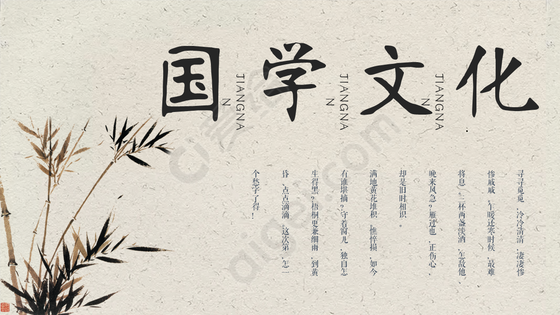 国学文化
JIANGNA
N
JIANGNA
N
JIANGNA
N
寻寻觅觅，冷冷清清，凄凄惨
惨戚戚。乍暖还寒时候，最难
将息。三杯两盏淡酒，怎敌他
晚来风急？雁过也，正伤心，
却是旧时相识。
满地黄花堆积，憔悴损，如今
有谁堪摘？守着窗儿，独自怎
生得黑？梧桐更兼细雨，到黄
昏、点点滴滴。这次第，怎一
个愁字了得！